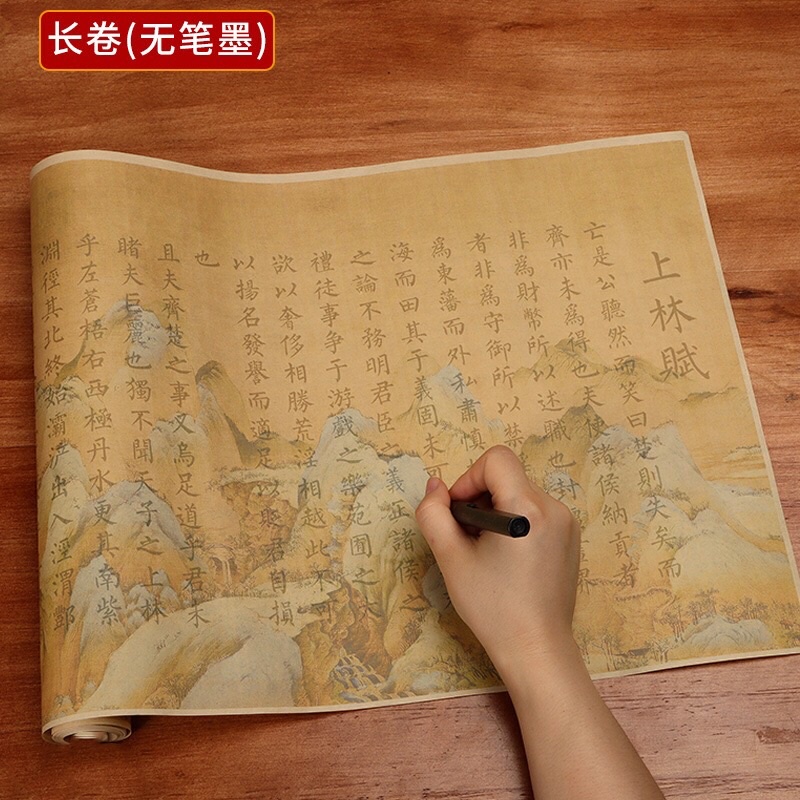 长卷(无笔墨)
上林賦
亡是公聽然而笑曰楚則失矣而
齊亦未爲得也夫使諸侯納貢者
非爲財幣所以述職也封界
者非爲守御所以禁
爲東藩而外私肅慎
海而田其于義固未可
之論不務明君臣之義正諸侯之
禮徒事争于游戲之樂苑囿之大
欲以奢侈相勝荒淫相越此不可
以揚名發譽而適足以貶君自損
也
且夫齊楚之事又烏足道乎君未
睹夫巨麗也獨不聞天子之上林
乎左蒼梧右西極丹水更其南紫
淵徑其北終始灞滻出入涇渭酆